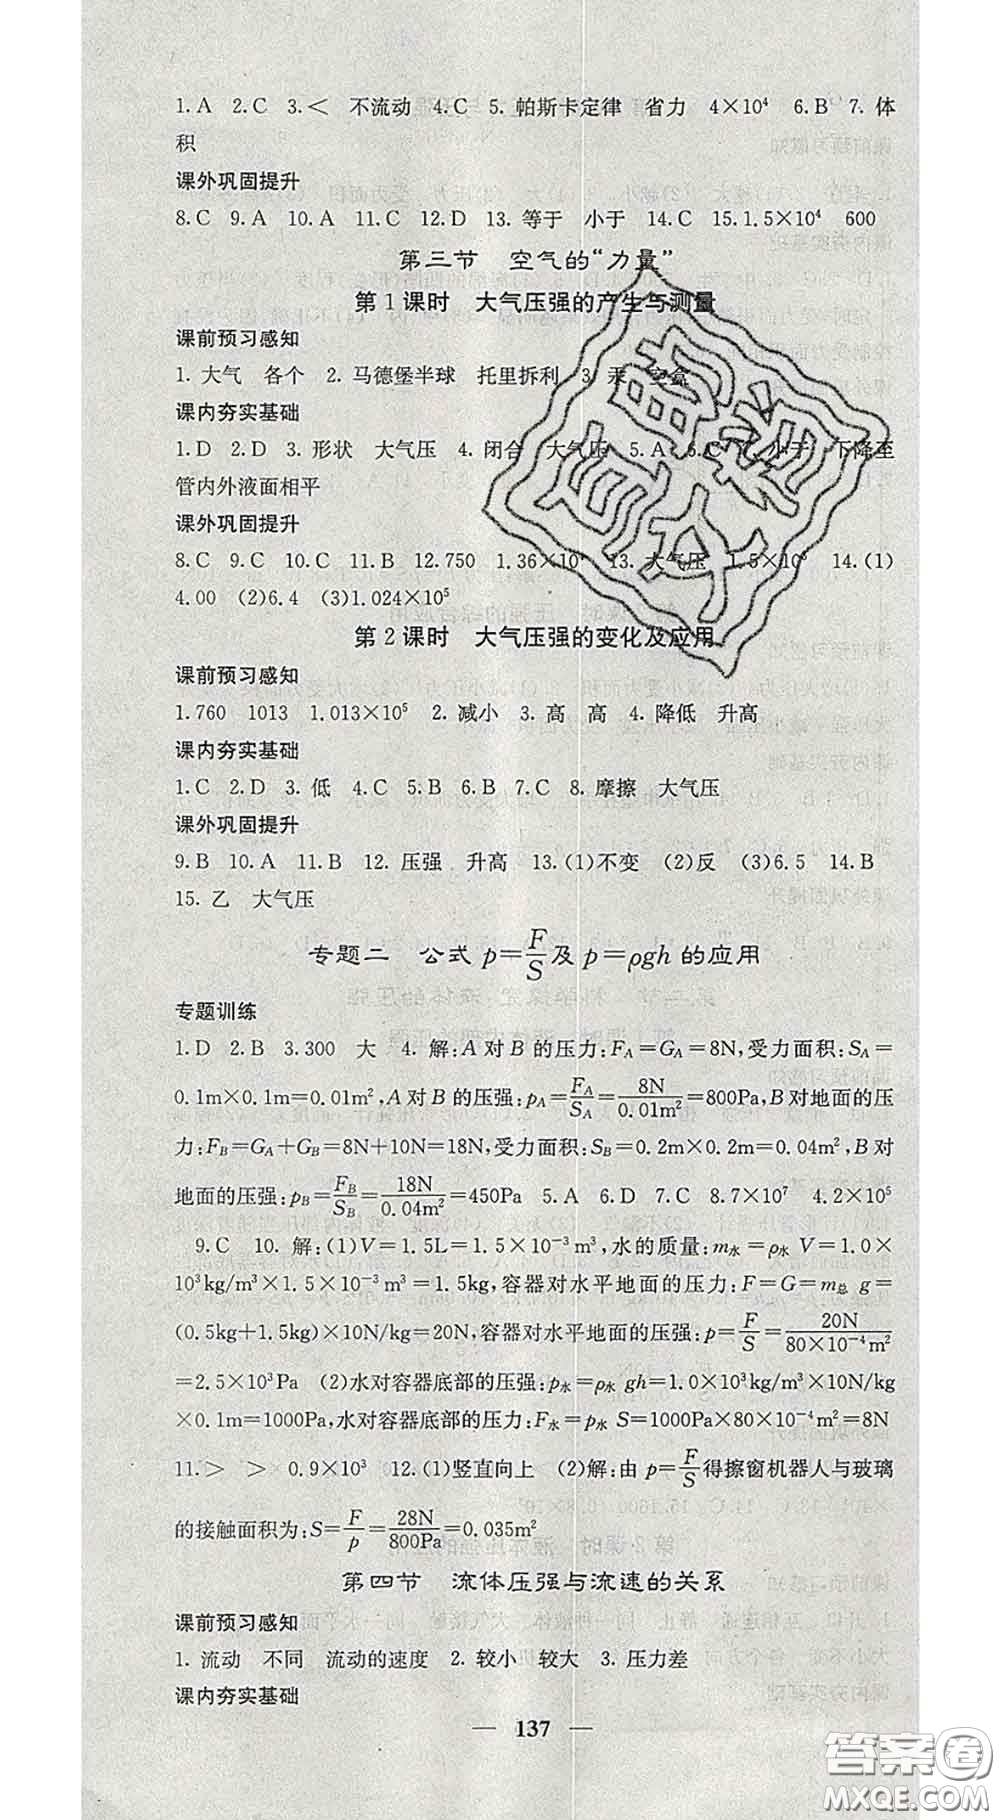 1.A 2.C 3.< 不流动 4.C 5.帕斯卡定律 省力 4×10⁴ 6.B 7.体
积
课外巩固提升
8.C 9.A 10.A 11.C 12.D 13.等于 小于 14.C 15.1.5×10⁴ 600
第三节 空气的“力量”
第1课时 大气压强的产生与测量
课前预习感知
1.大气 各个 2.马德堡半球 托里拆利 3.汞 空盒
课内夯实基础
1.D 2.D 3.形状 大气压 4.闭合 大气压 5.A 6.C 7.小于 下降至
管内外液面相平
课外巩固提升
8.C 9.C 10.C 11.B 12.750 1.36×10 13.大气压 1.5×10⁵ 14.(1)
4.00 (2)6.4 (3)1.024×10⁵
第2课时 大气压强的变化及应用
课前预习感知
1.760 1013 1.013×10⁵ 2.减小 3.高 高 4.降低 升高
课内夯实基础
1.C 2.D 3.低 4.C 5.B 6.B 7.C 8.摩擦 大气压
课外巩固提升
9.B 10.A 11.B 12.压强 升高 13.(1)不变 (2)反 (3)6.5 14.B
15.乙 大气压
专题二 公式 p=F/S 及 p=ρgh 的应用
专题训练
1.D 2.B 3.300 大 4.解:A对B的压力:F_A=G_A=8N,受力面积:S_A=
0.1m×0.1m=0.01m²,A对B的压强:p_A=F_A/S_A=8N/0.01m²=800Pa,B对地面的压
力:F_B=G_A+G_B=8N+10N=18N,受力面积:S_B=0.2m×0.2m=0.04m²,B对
地面的压强:p_B=F_B/S_B=18N/0.04m²=450Pa 5.A 6.D 7.C 8.7×10⁷ 4.2×10⁵
9.C 10.解:(1)V=1.5L=1.5×10⁻³m³,水的质量:m水=ρ水V=1.0×
10³kg/m³×1.5×10⁻³m³=1.5kg,容器对水平地面的压力:F=G=m总g=
(0.5kg+1.5kg)×10N/kg=20N,容器对水平地面的压强:p=F/S=20N/80×10⁻⁴m²
=2.5×10³Pa (2)水对容器底部的压强:p水=ρ水gh=1.0×10³kg/m³×10N/kg
×0.1m=1000Pa,水对容器底部的压力:F水=p水S=1000Pa×80×10⁻⁴m²=8N
11.> > 0.9×10³ 12.(1)竖直向上 (2)解:由p=F/S得擦窗机器人与玻璃
的接触面积为:S=F/p=28N/800Pa=0.035m²
第四节 流体压强与流速的关系
课前预习感知
1.流动 不同 流动的速度 2.较小 较大 3.压力差
课内夯实基础
— 137 —
答案圈
MXQE.COM